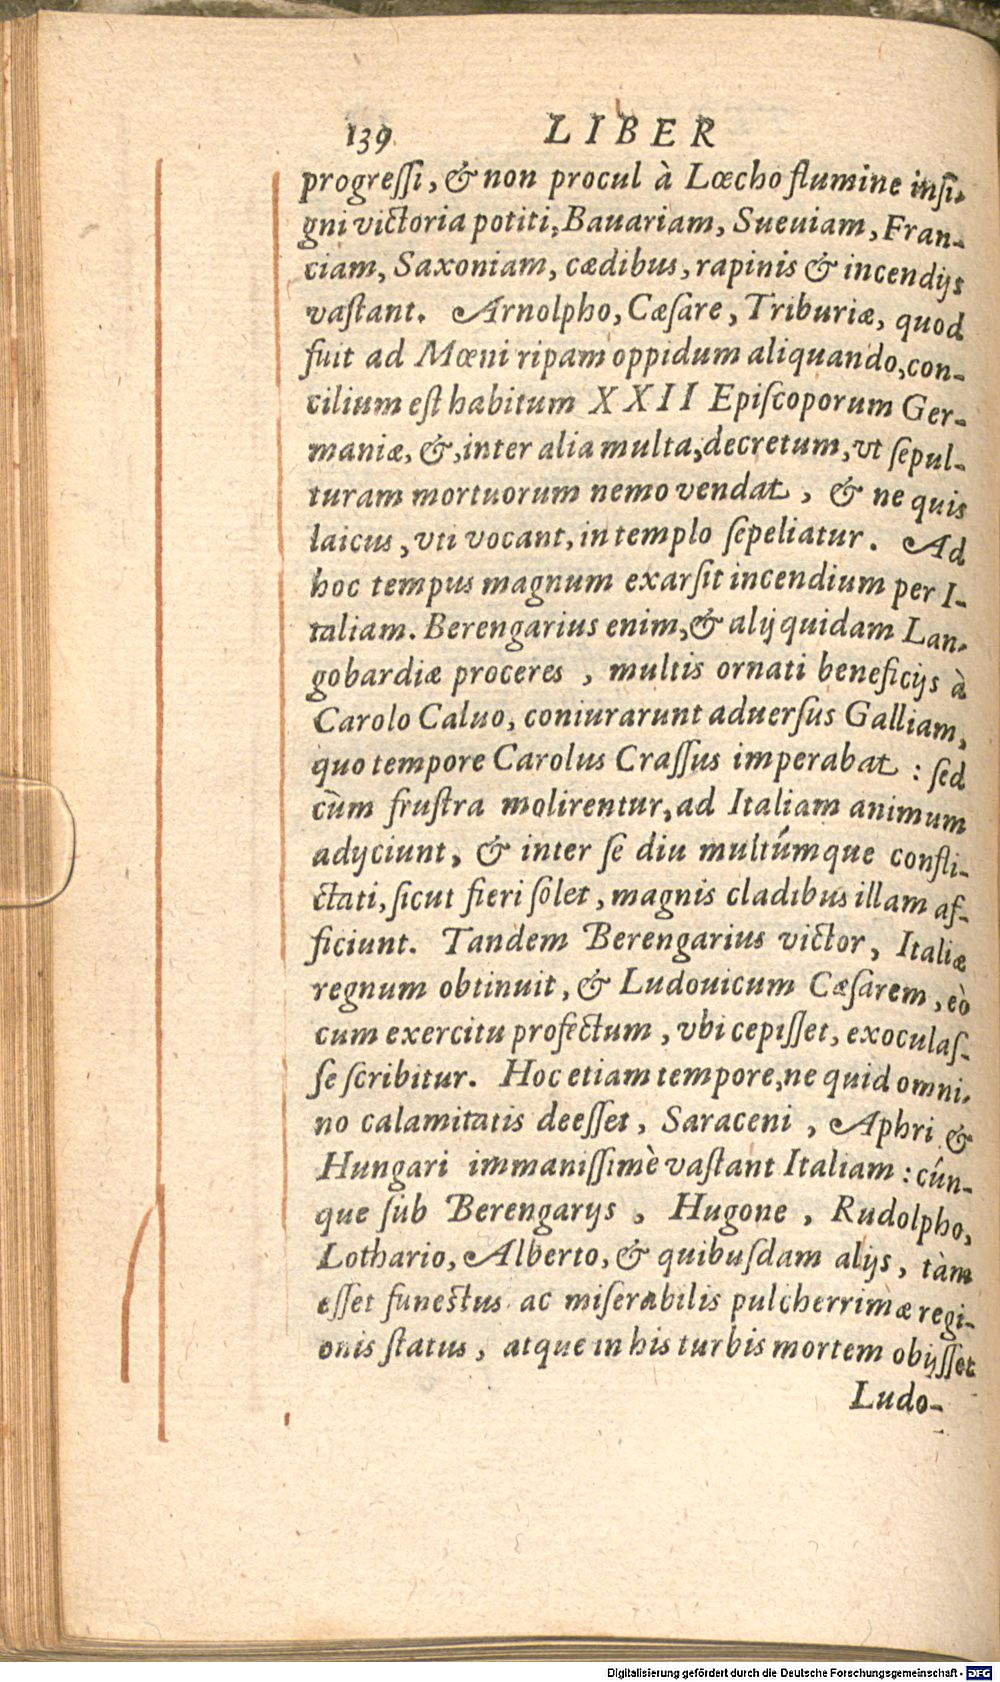 139 LIBER
progreſſi, & non procul à Lœcho flumine inſi-
gni victoria potiti, Bauariam, Sueuiam, Fran-
ciam, Saxoniam, cædibus, rapinis & incendijs
vaſtant. Arnolpho, Cæſare, Triburiæ, quod
fuit ad Mœni ripam oppidum aliquando, con-
cilium eſt habitum XXII Epiſcoporum Ger-
maniæ, &, inter alia multa, decretum, vt ſepul-
turam mortuorum nemo vendat, & ne quis
laicus, vti vocant, in templo ſepeliatur. Ad
hoc tempus magnum exarſit incendium per I-
taliam. Berengarius enim, & alij quidam Lan-
gobardiæ proceres, multis ornati beneficijs à
Carolo Caluo, coniurarunt aduerſus Galliam,
quo tempore Carolus Craſſus imperabat: ſed
cùm fruſtra molirentur, ad Italiam animum
adijciunt, & inter ſe diu multúmque confli-
ctati, ſicut fieri ſolet, magnis cladibus illam af-
ficiunt. Tandem Berengarius victor, Italiæ
regnum obtinuit, & Ludouicum Cæſarem, eò
cum exercitu profectum, vbi cepiſſet, exoculaſ-
ſe ſcribitur. Hoc etiam tempore, ne quid omni-
no calamitatis deeſſet, Saraceni, Aphri &
Hungari immaniſſimè vaſtant Italiam: cún-
que ſub Berengarijs, Hugone, Rudolpho,
Lothario, Alberto, & quibuſdam alijs, tàm
eſſet funeſtus ac miſerabilis pulcherrimæ regi-
onis ſtatus, atque in his turbis mortem obijſſet
Ludo-
Digitalisierung gefördert durch die Deutsche Forschungsgemeinschaft - DFG